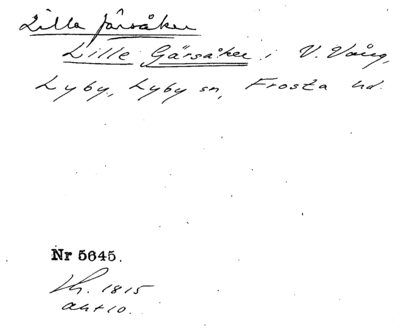 Lille Järsåker
Lille Gärsåker i V. Vång,
Lyby, Lyby sn, Frosta hd.
Nr 5645.
Lh. 1815
akt 10.